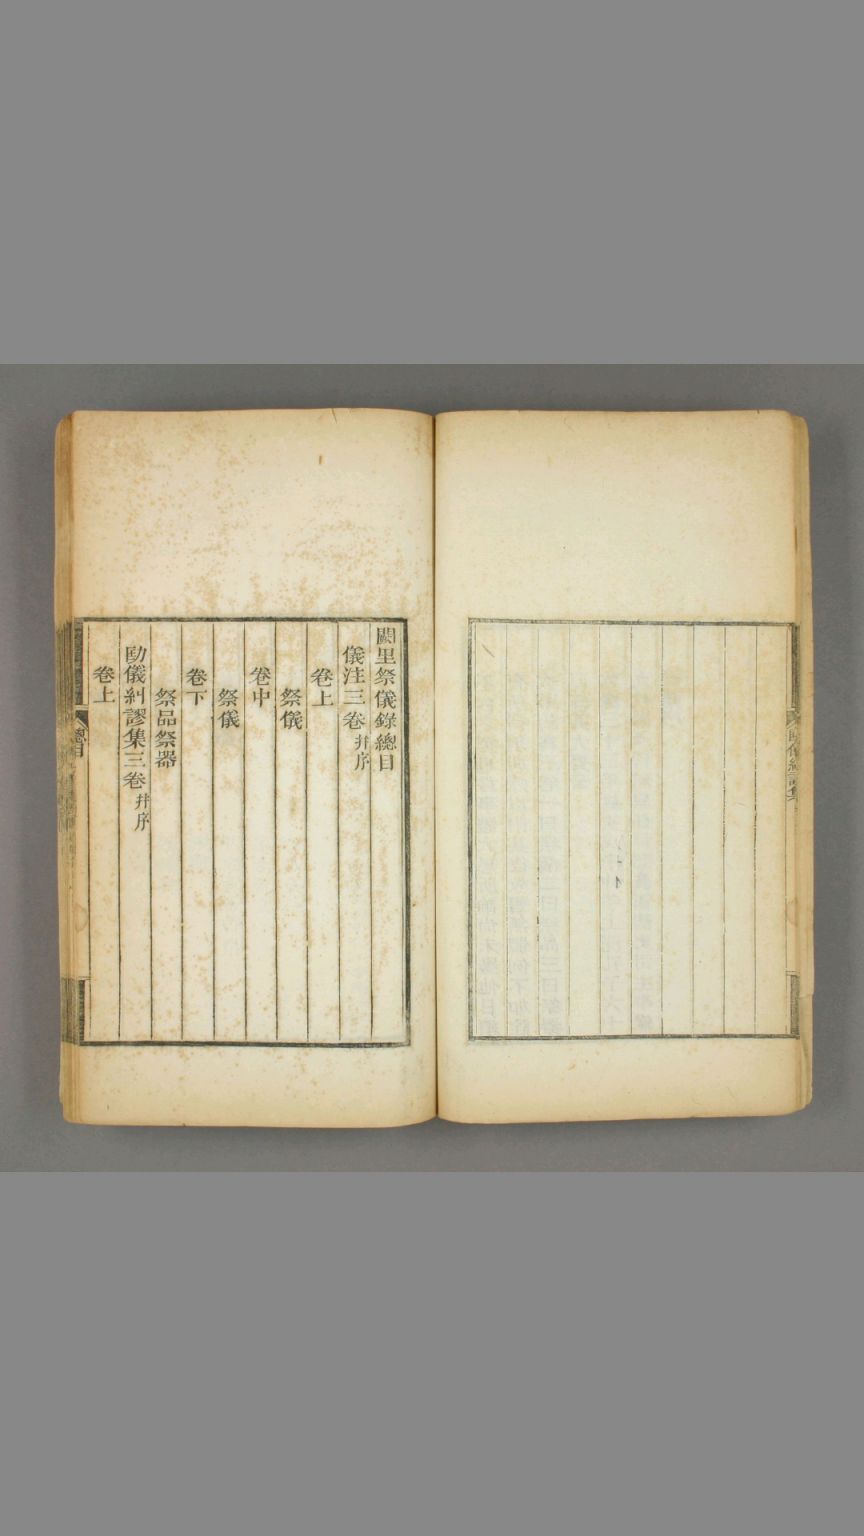 闕里祭儀錄總目
儀注三卷 幷序
卷上
祭儀
卷中
祭儀
卷下
祭品祭器
劻儀糾謬集三卷 幷序
卷上
總目